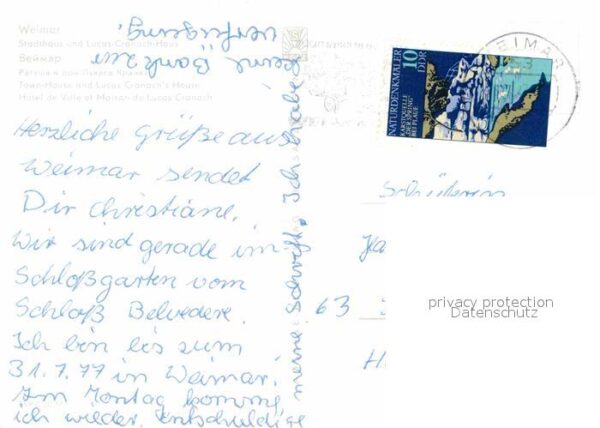 Weimar
Stadthaus und Lucas-Cranach-Haus
Веймар
Ратуша и дом Лукаса Кранаха
Town-House and Lucas Cranach's House
Hôtel de Ville et Maison de Lucas Cranach
Herzliche Grüße aus
Weimar sendet
Dir Christiane.
Wir sind gerade im
Schloßgarten vom
Schloß Belvedere.
Ich bin bis zum
31.7.77 in Weimar.
Am Montag komme
ich wieder. Entschuldige
meine Schrift, Ich habe
keine Bank zur
Verfügung.
WEIMAR
NATURDENKMÄLER
KARSTQUELLE
„DER SPRING“
BEI PLAUE
10
DDR
Schülerin
63
privacy protection
Datenschutz